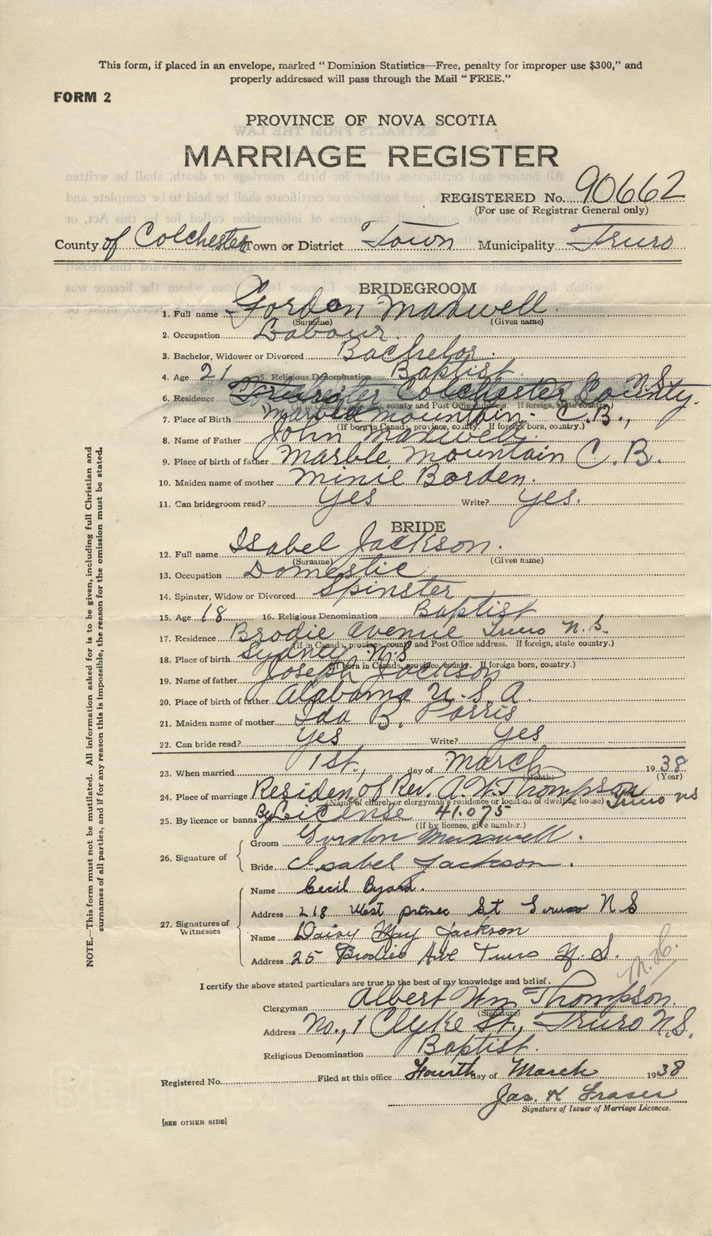 This form, if placed in an envelope, marked " Dominion Statistics—Free, penalty for improper use $300," and
properly addressed will pass through the Mail " FREE."
FORM 2
PROVINCE OF NOVA SCOTIA
MARRIAGE REGISTER
REGISTERED No. 90662
(For use of Registrar General only)
County of Colchester Town or District Town Municipality Truro
BRIDEGROOM
1. Full name Gordon Maxwell
(Surname) (Given name)
2. Occupation Labour.
3. Bachelor, Widower or Divorced Bachelor.
4. Age 21 5. Religious Denomination Baptist
6. Residence Colchester County. N.S.
county and Post Office address. If foreign, state country.
7. Place of Birth Marble Mountain C.B.,
(If born in Canada, province, county. If foreign born, country.)
8. Name of Father John Maxwell.
9. Place of birth of father Marble Mountain C.B.
10. Maiden name of mother Minie Borden.
11. Can bridegroom read? Yes Write? Yes.
BRIDE
12. Full name Isabel Jackson.
(Surname) (Given name)
13. Occupation Domestic
14. Spinster, Widow or Divorced Spinster
15. Age 18 16. Religious Denomination Baptist
17. Residence Brodie Avenue Truro N.S.
(If in Canada, province, county and Post Office address. If foreign, state country.)
18. Place of birth Sydney N.S
(If born in Canada, province, county. If foreign born, country.)
19. Name of father Joseph Jackson
20. Place of birth of father Alabama U.S.A.
21. Maiden name of mother Ida B. Farris
22. Can bride read? Yes Write? Yes
23. When married 1st., day of March 1938
(Month) (Year)
24. Place of marriage Residen of Rev. A.W. Thompson Truro NS
(Name of church or clergyman's residence or location of dwelling house)
25. By licence or banns By License 41.075
(If by licence, give number.)
26. Signature of
Groom Gordon Maxwell.
Bride Isabel Jackson.
27. Signatures of Witnesses
Name Cecil Byard.
Address 218 West prince St Truro N S
Name Daisy May Jackson
Address 25 Brodies Ave Truro N.S.
I certify the above stated particulars are true to the best of my knowledge and belief.
Clergyman Albert Wm Thompson.
(Signature)
Address No., 1 Clyke St., Truro N.S.
Religious Denomination Baptist.
Registered No. Filed at this office Fourth day of March 1938
Jas. K Fraser
Signature of Issuer of Marriage Licences.
[SEE OTHER SIDE]
NOTE.—This form must not be mutilated. All information asked for is to be given, including full Christian and
surnames of all parties, and if for any reason this is impossible, the reason for the omission must be stated.